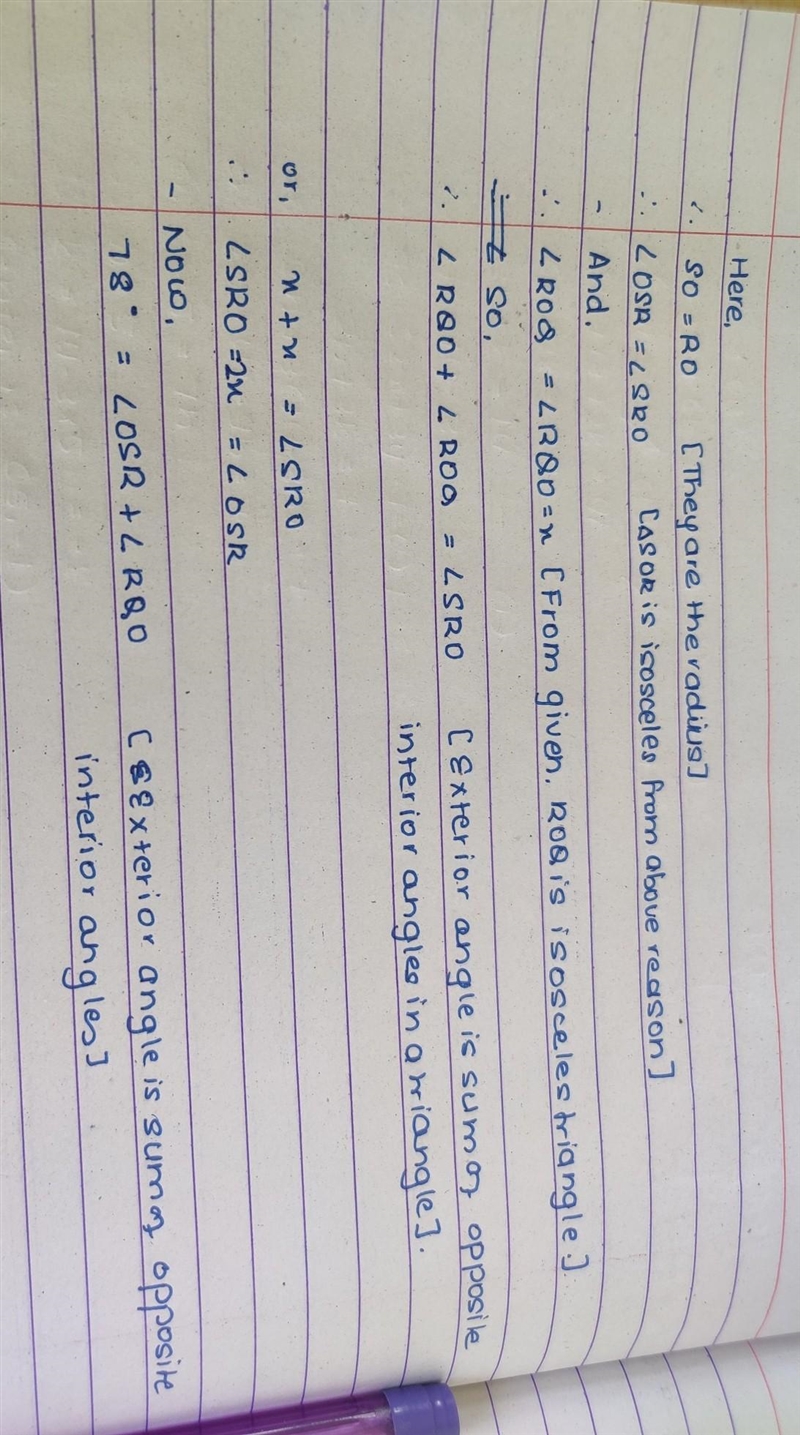 Here,
∴ SO = RO [They are the radius]
∴ ∠OSR = ∠SRO [△SOR is isosceles from above reason]
- And,
∴ ∠ROQ = ∠RQO = x [From given, ROQ is isosceles triangle.]
So,
∴ ∠RQO + ∠ROQ = ∠SRO [Exterior angle is sum of opposite
interior angles in a triangle].
or, x + x = ∠SRO
∴ ∠SRO = 2x = ∠OSR
- Now,
78° = ∠OSR + ∠RQO [Exterior angle is sum of opposite
interior angles]